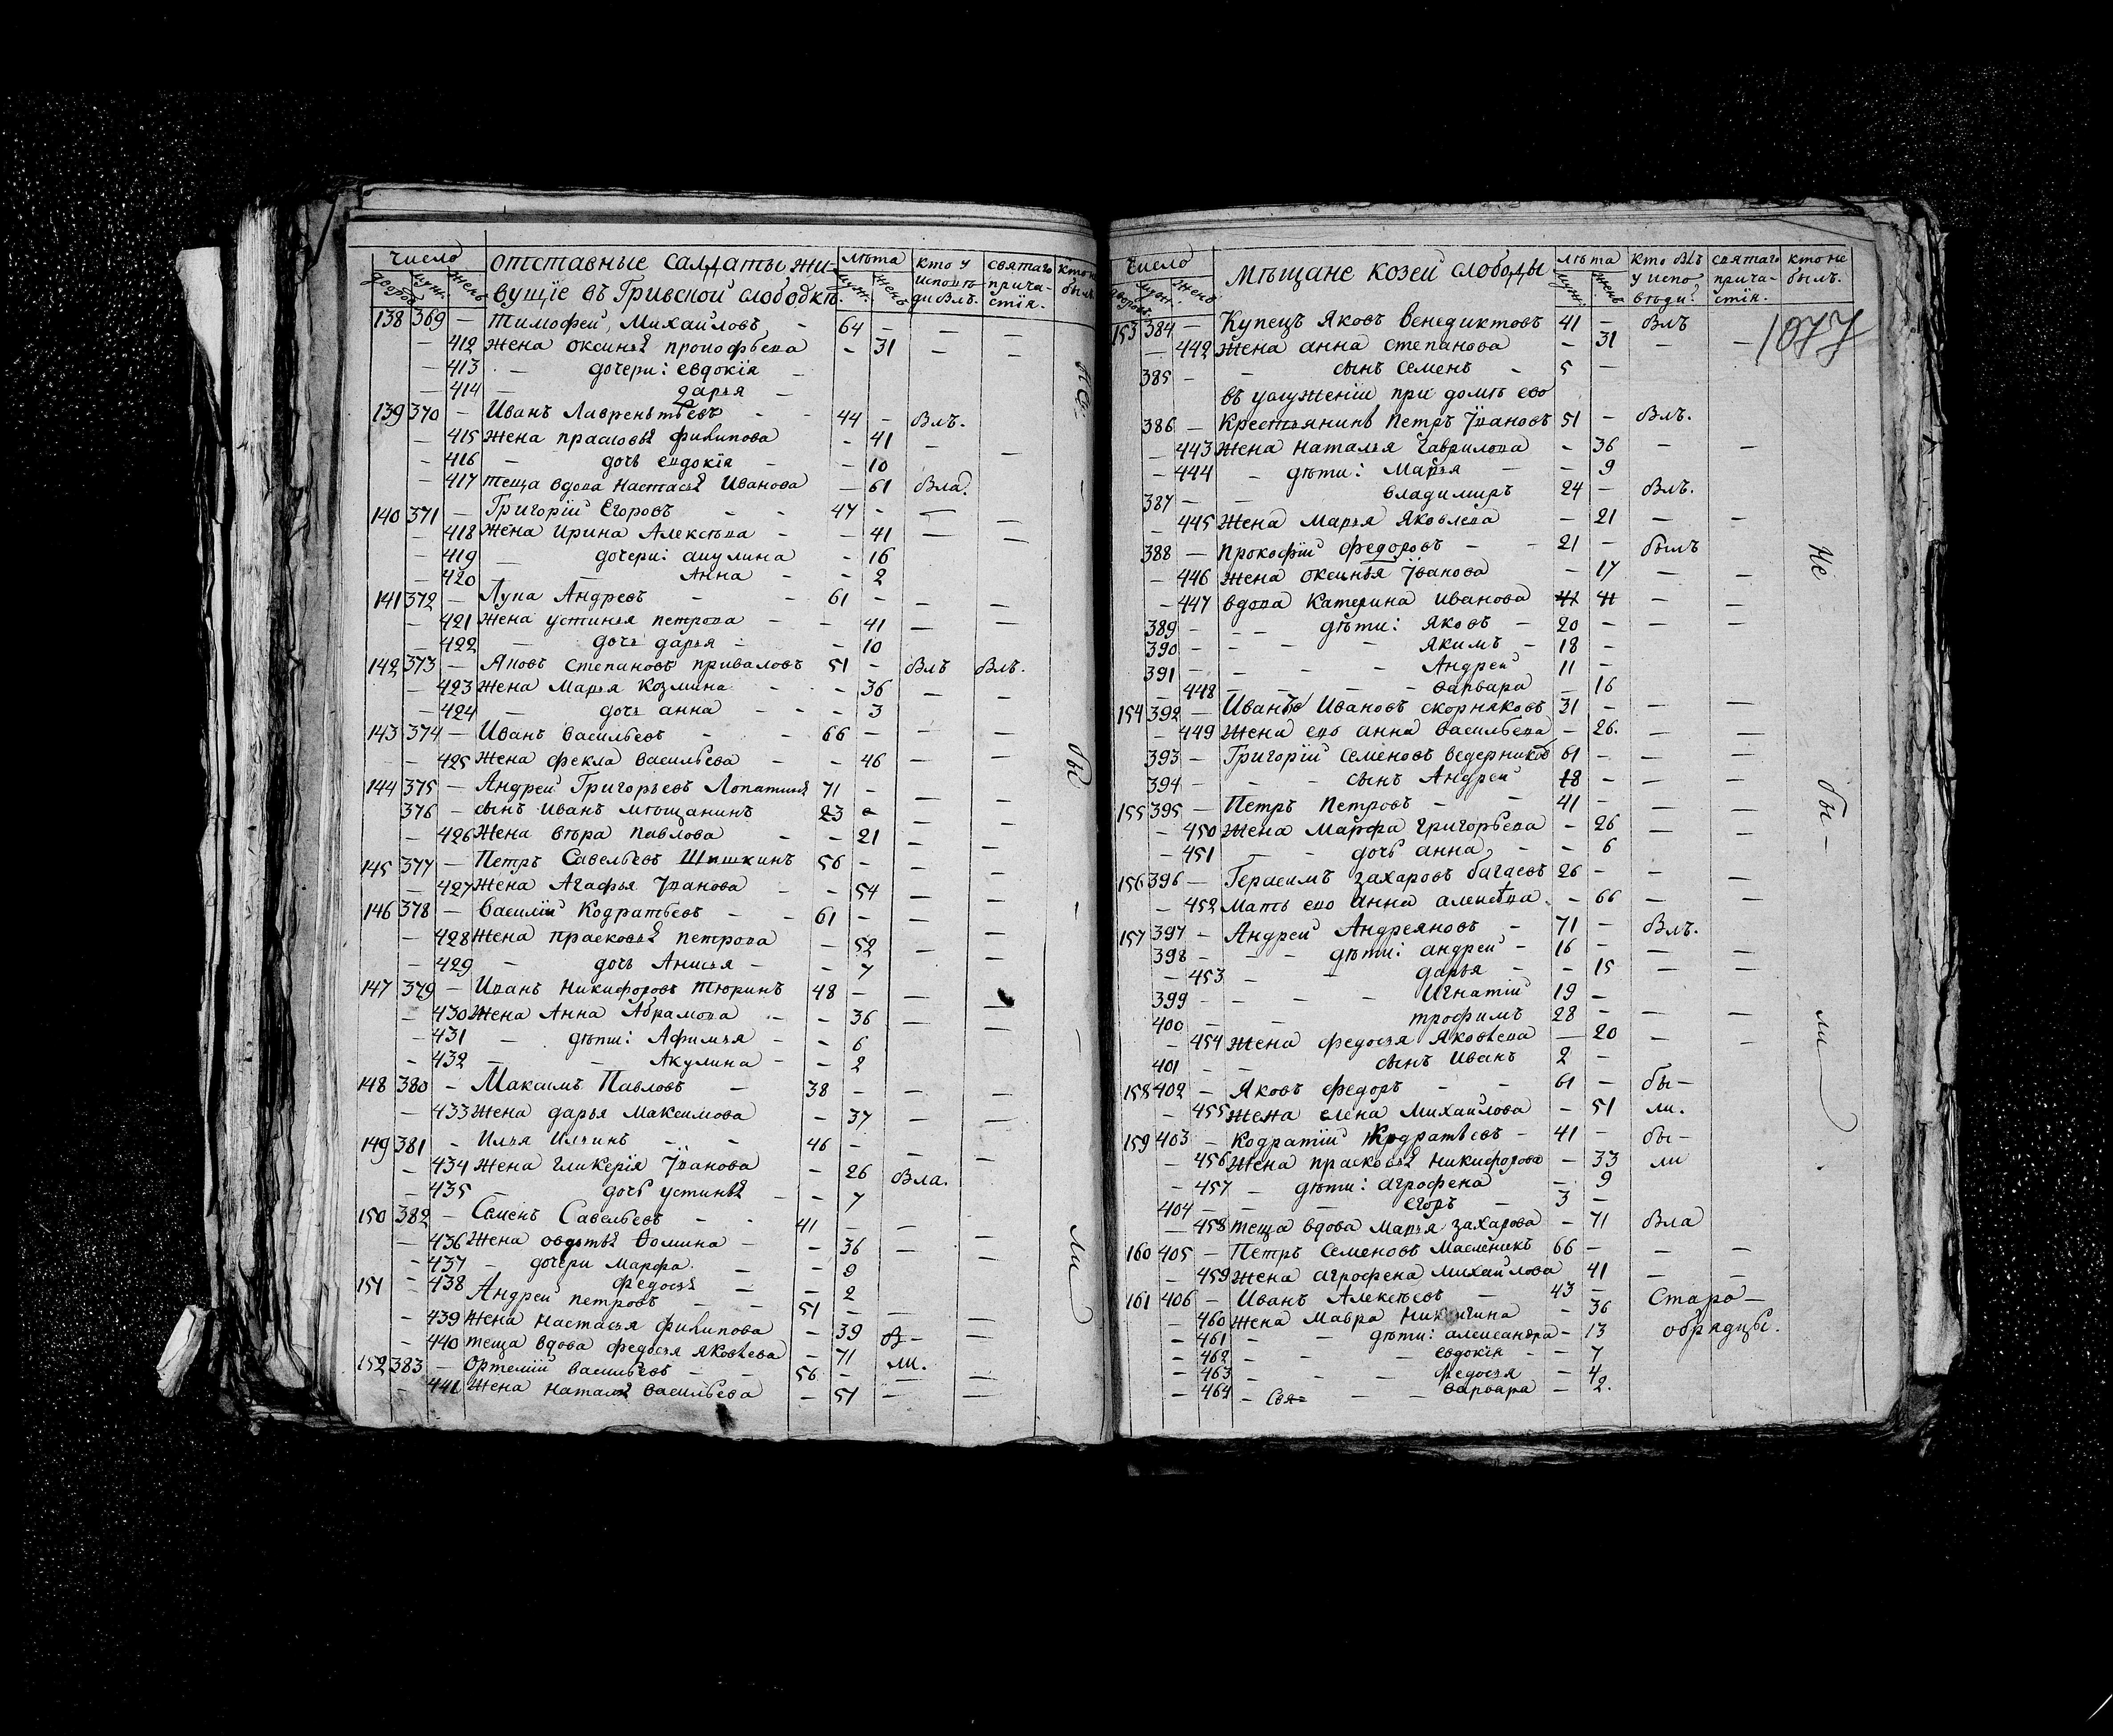 число
двора муж. женъ
отставные салдаты жи-
вущіе въ Гривской слободкѣ.
лѣта
муж. женъ
кто у исповѣди былъ.
святаго прича-
стія.
кто не былъ
138 369 — Тимофей Михайловъ — 64 — — —
— 412 жена оксинья прокофьева — 31 — —
— 413 — дочери: евдокія —
— 414 — дарья —
139 370 — Иванъ Лаврентьевъ — — 44 — былъ.
— 415 жена прасковья филипова — 41 —
— 416 — дочь евдокія — — 10 —
— 417 теща вдова настасья Иванова — 61 была.
140 371 — Григорій Егоровъ — — 47 — — —
— 418 жена Ирина Алексѣева — — 41 — —
— 419 — дочери: акулина — 16
— 420 — Анна — — 2
141 372 — Лупа Андреевъ — — 61 — — —
— 421 жена устинья петрова — — 41 — —
— 422 — дочь дарья — — 10
142 373 — Яковъ степановъ приваловъ 51 — былъ былъ.
— 423 жена Марья Козмина — — 36 — —
— 424 — дочь анна — — — 3
143 374 — Иванъ васильевъ — — 66 — — —
— 425 жена фекла васильева — — 46 — —
144 375 — Андрей Григорьевъ Лопатинъ 71 — — —
376 — сынъ иванъ мѣщанинъ 23 — — —
— 426 жена вѣра павлова — — 21 — —
145 377 — Петръ Савельевъ Шишкинъ 56 — — —
— 427 жена Агафья Іванова — — 54 — —
146 378 — Василій Кодратьевъ — — 61 — — —
— 428 жена прасковья петрова — 52 — —
— 429 — дочь Анисья — — 7 —
147 379 — Иванъ Никифоровъ Тюринъ 48 — — —
— 430 жена Анна Абрамова — — 36 — —
— 431 — дѣти: Афимья — — 6
— 432 — — Акулина — — 2
148 380 — Максимъ Павловъ — 38 — — —
— 433 жена дарья Максимова — 37 — —
149 381 — Илья Ильинъ — — 46 — — —
— 434 жена гликерія Іванова — 26 была.
— 435 — дочь устинья — — 7
150 382 — Семенъ Савельевъ — — 41 — — —
— 436 жена овдотья Фомина — — 36 — —
— 437 — дочери Марфа — — 9
— 438 федосья — — 2
151 — Андрей петровъ — — 51 — —
— 439 жена Настасья филипова — 39 бы- —
— 440 теща вдова федосья Яковлева — 71 ли. —
152 383 — Ортемій васильевъ — — 56 — — —
— 441 жена наталья васильева — 51 — —
не
—
бы
—
—
ли
число
двора муж. женъ
Мѣщане козей слободы
лѣта
муж. женъ
кто былъ у испо
вѣди.
святаго прича-
стія.
кто не былъ.
1077
153 384 — Купецъ Яковъ венедиктовъ 41 — былъ
— 442 жена анна степанова — 31 — —
385 — — сынъ Семенъ — 5 —
въ услуженіи при домѣ ево
386 — Крестьянинъ Петръ Івановъ 51 — былъ.
— 443 жена наталья гаврилова — 36 — —
— 444 — дѣти: Марья — — 9
387 — — владимиръ 24 — былъ.
— 445 жена Марья Яковлева — 21 — —
388 — прокофій федоровъ — — 21 — былъ
— 446 жена оксинья Іванова — 17 — —
— 447 вдова катерина иванова 41 41 — —
389 — — — дѣти: Яковъ — 20 — — —
390 — — — Якимъ — 18 —
391 — — — Андрей 11 —
— 448 — — — варвара — 16
154 392 — Иванъ Ивановъ скорняковъ 31 — — —
— 449 жена ево анна васильева — 26. — —
393 — Григорій семеновъ ведерниковъ 61 — — —
394 — — сынъ Андрей 18 — — —
155 395 — Петръ Петровъ — — 41 — — —
— 450 жена Марфа григорьева — 26 — —
— 451 — — дочь анна — — 6
156 396 — Герасимъ захаровъ багаевъ 26 — — —
— 452 мать ево анна алексѣева. — 66 — —
157 397 — Андрей Андреяновъ — 71 — былъ.
398 — — — дѣти: андрей — 16 — — —
— 453 — — дарья — — 15 — —
399 — — — Игнатій 19 —
400 — — трофимъ 28 — — —
— 454 жена федосья Яковлева — 20 — —
401 — — сынъ Иванъ 2 —
158 402 — Яковъ федоръ — — 61 — бы-
— 455 жена елена Михайлова — 51 ли.
159 403 — кодратій Кодратьевъ — 41 — бы-
— 456 жена прасковья никифорова — 33 ли
— 457 — дѣти: агрофена — 9
404 — — — егоръ — 3 —
— 458 теща вдова Марья захарова — 71 была
160 405 — Петръ Семеновъ Масленикъ 66 — — —
— 459 жена агрофена михайлова 41 — —
161 406 — Иванъ Алексѣевъ — 43 — Старо-
— 460 жена Мавра Никитина — 36 обрядцы.
— 461 — — дѣти: александра — 13
— 462 — — — евдокія — — 7
— 463 — — — федосья — 4
— 464 — — — варвара — 2.
— Свя=
не
бы-
ли